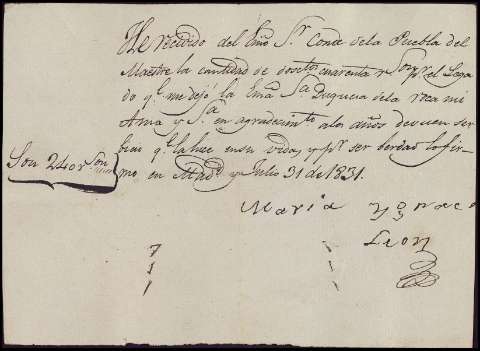 He recivido del Exmo Sr. Conde de la Puebla del
Maestre la cantidad de doscitos cuarenta rs von pr. el Lega
do qe. me dejó la Exma Sa Duquesa de la roca mi
Ama y Sa. en agradecimto a los años de vuen ser
bicio qe. la hice en su vida, y pr. ser berdad lo fir-
mo en Madd. y Julio 31 de 1831.
Son 240 rs von
Maria Ygnacia
Leon